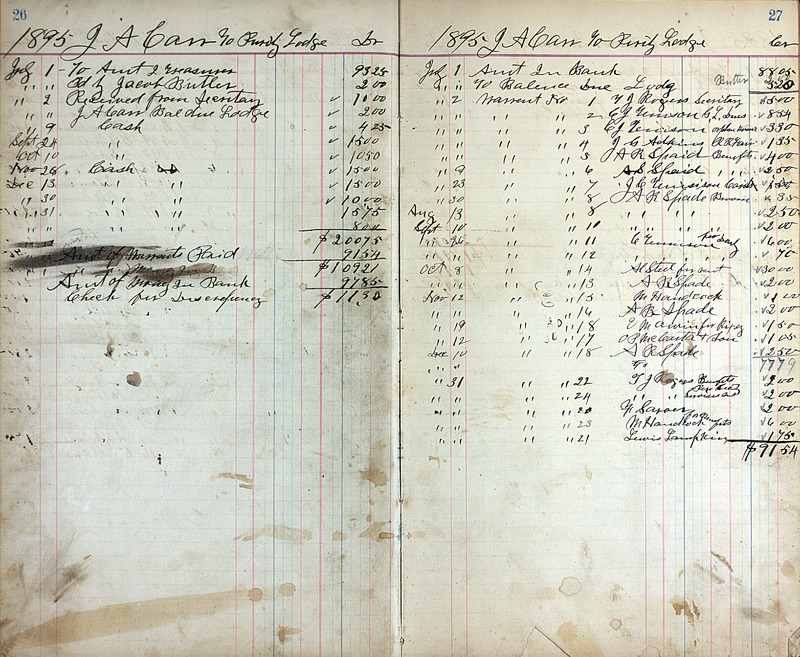 26
1895 J A Carr To Purity Lodge Dr
July 1 To Amt I Treasurer 93 25
" " Jacob Butler 2 00
" 2 Received from Secretary ✓ 10 00
" " J A Carr Bal due Lodge ✓ 2 00
" 9 Cash ✓ 4 25
Sept 24 " " ✓ 15 00
Oct 10 " " ✓ 10 50
Nov 26 Cash ✓ 15 00
Dec 13 " " ✓ 15 00
" 30 " " ✓ 10 00
" 31 " " 15 75
" " " " 8 00
$200 75
Amt of Warrants Paid 91 54
$109 21
Amt of Mony In Bank 97 85
Check per Discrepency $11 36
27
1895 J A Carr To Purity Lodge Cr
July 1 Amt In Bank 88 05
" " To Balance Due Lodg Butler 5 20
" 2 Warrant No 1 T J Rogers Secritary ✓ 5 00
" " " " 2 G L Dues ✓ 8 54
" " " " 3 ✓ 3 30
" " " " 4 J G Adkins ✓ 1 35
" " " " 5 A R Spaid Benefits ✓ 4 00
" 9 " " 6 A S Spaid ✓ 2 50
" 23 " " 7 J C Tennison ✓ 1 50
" 30 " " 8 A R Spade ✓ 35
Aug 13 " " 8 " " 2 50
Sept 10 " " 10 " " ✓ 2 00
" 26 " " 11 C Tennison ✓ 6 00
" " " " 12 " " ✓ 70
Oct 8 " " 14 ✓ 30 00
" " " " 13 A R Spade ✓ 2 00
Nov 12 " " 15 M Handcock ✓ 1 00
" " " " 16 A R Spade ✓ 2 00
" 19 " " 18 ✓ 1 50
" 12 " " 17 Son ✓ 1 05
Dec 10 " " 18 A R Spade ✓ 2 50
77 79
" 31 " " 22 T J Rogers Benefits ✓ 2 00
" " " " 24 " " ✓ 2 00
" " " " 20 ✓ 2 00
" " " " 23 M Handcock ✓ 6 00
" " " " 21 Lewis Lampkins ✓ 1 75
$91 54